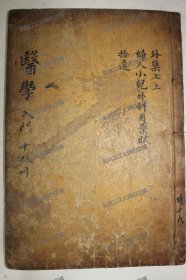 外集七上
婦人小兒外科用藥賦
拾遺
醫學入門 十八冊